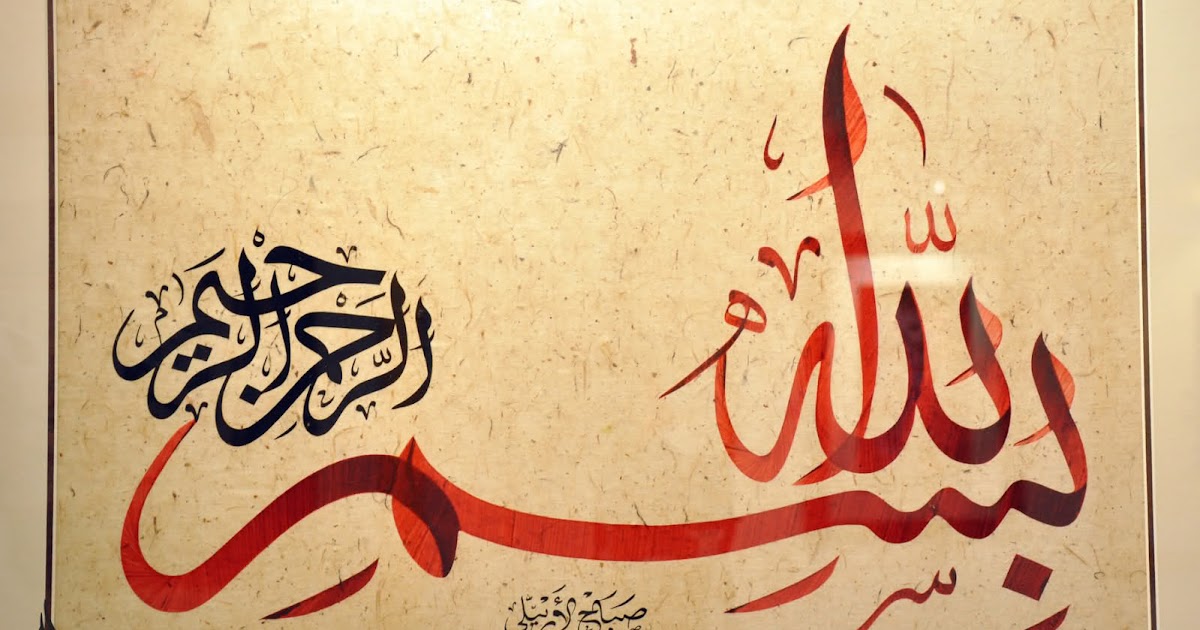 بسم الله
الرحمن الرحيم
صباح الأربيلي